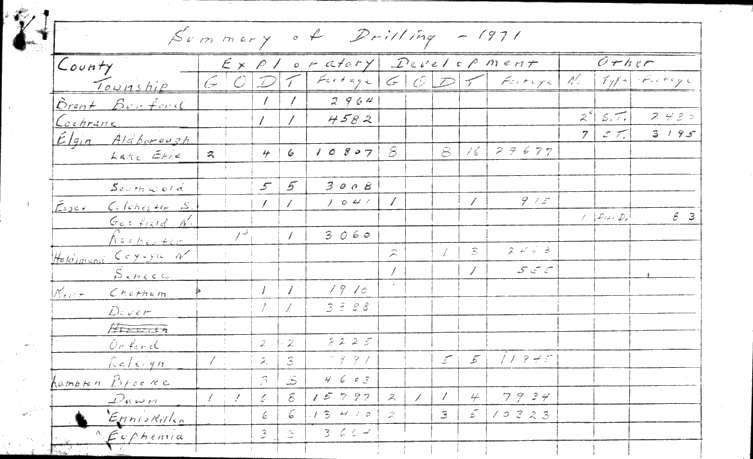 Summary of Drilling - 1971
County Exploratory Development Other
Township G O D T Footage G O D T Footage N. Type Footage
Brant Burford 1 1 2964
Cochrane 1 1 4582 2 S.T. 2430
Elgin Aldborough 7 S.T. 3195
Lake Erie 2 4 6 10807 8 8 16 29677
Southwold 5 5 3008
Essex Colchester S. 1 1 1041 1 1 915
Gosfield N. 1 83
Rochester 1 1 3060
Haldimand Cayuga N 2 1 3
Seneca 1 1 555
Kent Chatham 1 1 1910
Dover 1 1 3388
Harwich
Orford 2 2 8225
Raleigh 1 2 3 5 5 11945
Lambton Brooke 3 3 4603
Dawn 1 1 6 8 15797 2 1 1 4 7934
Enniskillen 6 6 13410 2 3 5 10323
Euphemia 3 3